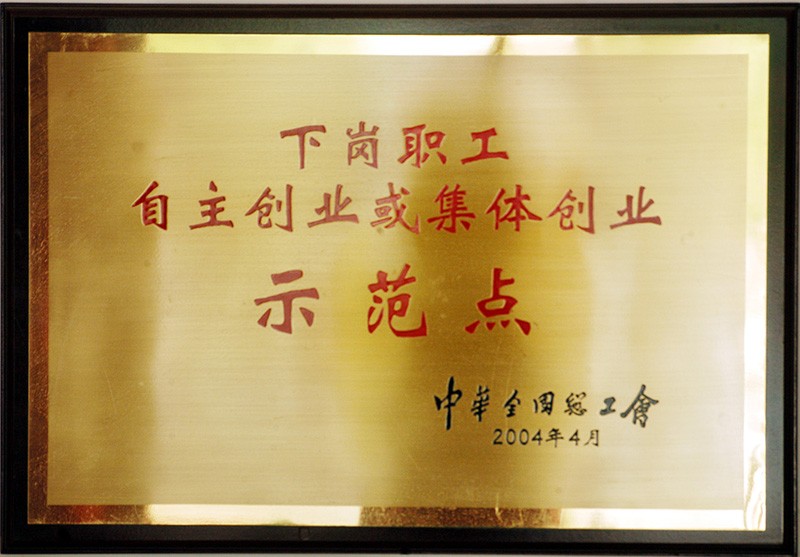 下岗职工
自主创业或集体创业
示范点
中华全国总工會
2004年4月